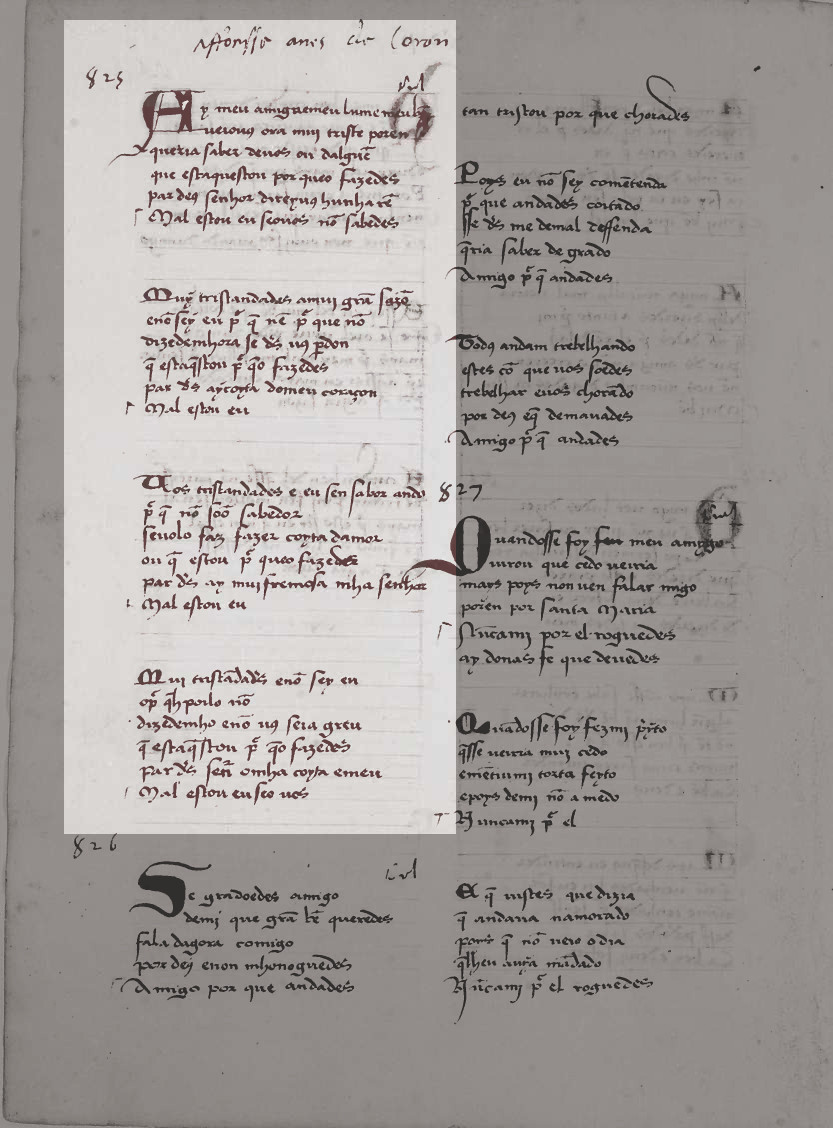 Affonsse anes de Coton
825
Ay meu amigo emeu lume meu bẽ
vervuus ora mui triste poren
queria saber devos ou dalguẽ
que estaquestou por queo fazedes
par deus senhor direyuus hunha rẽ
Mal estou eu seovos nõ sabedes
Muỹ tristandades amui grã sazõ
enõ sey eu pʳ q̃ nẽ pʳ que nõ
dizedemhora se ds̃ uus pdon
q̃ estaq̃stou pʳ q̃o fazedes
par ds̃ ay coyta domeu coraçon
Mal estou eu
Vos tristandades e eu sen sabor ando
pʳ q̃ nõ sõo sabedor
sevolo faz fazer coyta damor
ou q̃ estou pʳ queo fazedes
par ds̃ ay mui fremosa mha senhor
Mal estou eu
Mui tristãdads̃ enõ sey en
opʳ q̃ poilo nõ
dizedemho enõ uus seia greu
q̃ estaq̃stou pʳ q̃o fazedes
par ds̃ señʳ omha coyta emeu
Mal estou eu seo vos
826
Se gradoedes amigo
demi que grã bẽ queredes
falad agora comigo
por dei enon mhoneguedes
Amigo por que andades
tan tristou por que chorades
Poys eu nõ sey comẽtenda
pʳ que andades coitado
sse ds̃ me demal deffenda
q̃ria saber de grado
Amigo pʳ q̃ andades
Todus andam trebelhando
estes cõ que vos soẽdes
trebelhar evos chorãdo
por deus eq̃ demãdades
Amigo pʳ q̃ andades
827
Quandosse foy fen meu amigo
iurou que cedo verria
mays poys non ven falar migo
poren por santa Maria
Nũcami por el roguedes
ay donas fe que devedes
Quãdosse foy fezmi pʳyto
q̃sse verria mui cedo
emẽtiumi torta feyto
epoys demi nõ a medo
Nuncami pʳ el
El q̃ vistes que dizia
q̃ andava namorado
poys q̃ nõ veio odia
q̃lheu auya mãdado
Nũcami pʳ el roguedes